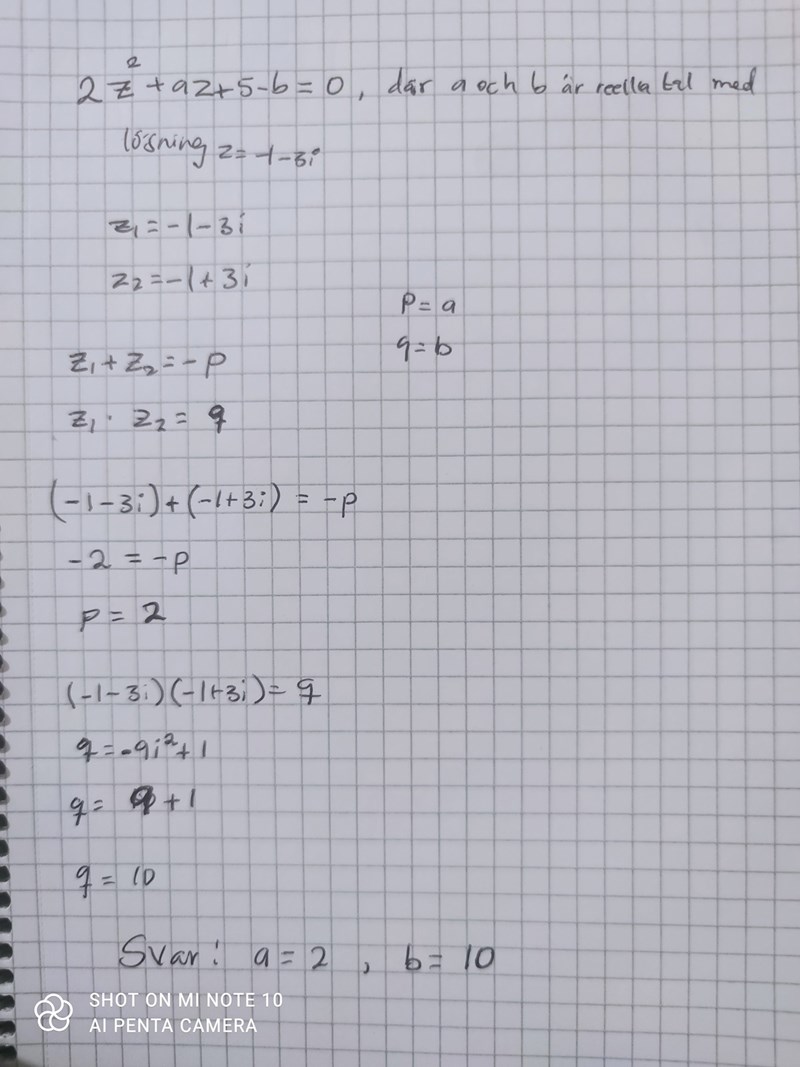 2z² + az + 5 - b = 0, där a och b är reella tal med
lösning z = -1-3i
z₁ = -1-3i
z₂ = -1+3i
p = a
q = b
z₁ + z₂ = -p
z₁ · z₂ = q
(-1-3i)+(-1+3i) = -p
-2 = -p
p = 2
(-1-3i)(-1+3i) = q
q = -9i² + 1
q = 9 + 1
q = 10
Svar: a = 2, b = 10
SHOT ON MI NOTE 10
AI PENTA CAMERA